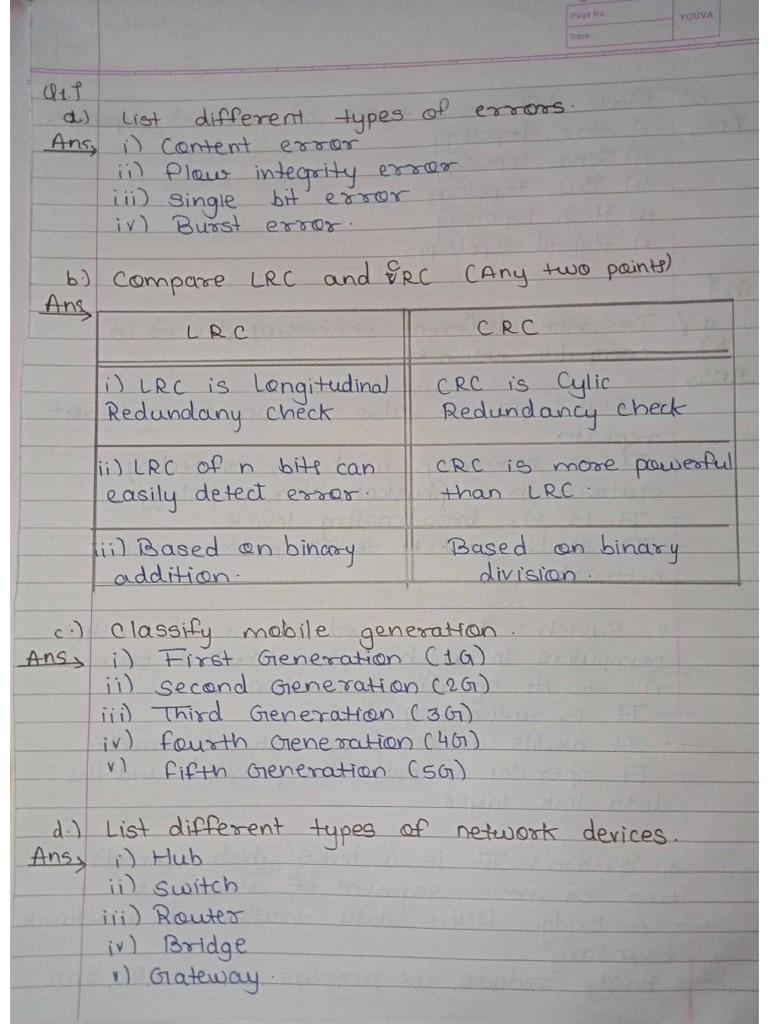 Page No.:
YOUVA
Date:
Q1.
a.) List different types of errors.
Ans, i) Content error
ii) Flow integrity error
iii) Single bit error
iv) Burst error.
b.) Compare LRC and CRC (Any two points)
Ans,
LRC CRC
i) LRC is Longitudinal CRC is Cylic
Redundany check Redundancy check
ii) LRC of n bits can CRC is more powerful
easily detect error. than LRC.
iii) Based on binary Based on binary
addition. division.
c.) Classify mobile generation.
Ans, i) First Generation (1G)
ii) Second Generation (2G)
iii) Third Generation (3G)
iv) fourth Generation (4G)
v) fifth Generation (5G)
d.) List different types of network devices.
Ans, i) Hub
ii) Switch
iii) Router
iv) Bridge
v) Gateway.